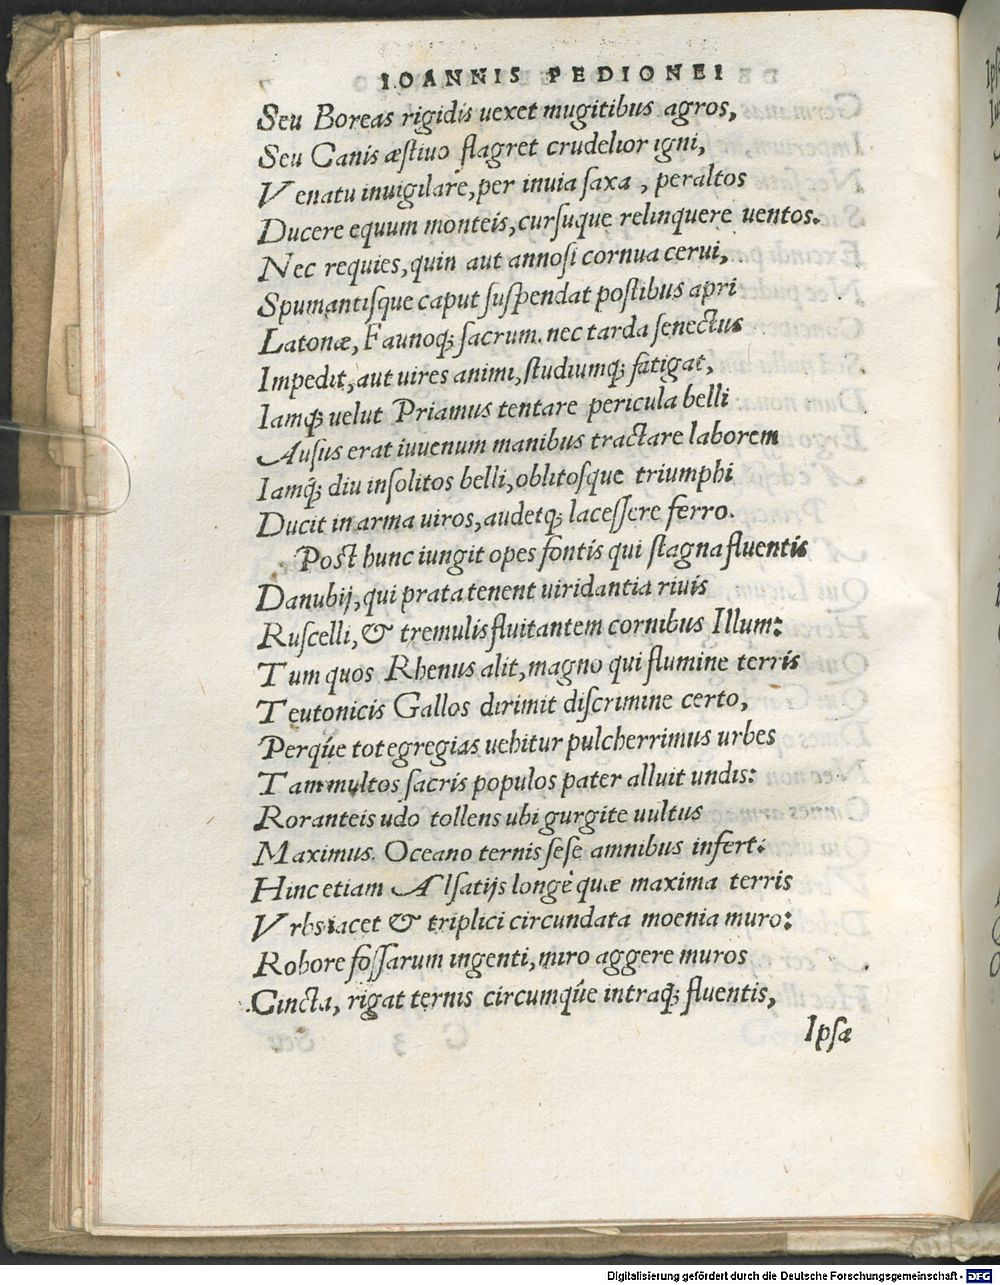 IOANNIS PEDIONEI
Seu Boreas rigidis uexet mugitibus agros,
Seu Canis æstiuo flagret crudelior igni,
Venatu inuigilare, per inuia saxa, peraltos
Ducere equum monteis, cursuque relinquere uentos.
Nec requies, quin aut annosi cornua cerui,
Spumantisque caput suspendat postibus apri
Latonæ, Faunoq; sacrum. nec tarda senectus
Impedit, aut uires animi, studiumq; fatigat,
Iamq; uelut Priamus tentare pericula belli
Ausus erat iuuenum manibus tractare laborem
Iamq; diu insolitos belli, oblitosque triumphi
Ducit in arma uiros, audetq; lacessere ferro.
Post hunc iungit opes fontis qui stagna fluentis
Danubij, qui prata tenent uiridantia riuis
Ruscelli, & tremulis fluitantem cornibus Illum:
Tum quos Rhenus alit, magno qui flumine terris
Teutonicis Gallos dirimit discrimine certo,
Perq́ue tot egregias uehitur pulcherrimus urbes
Tam multos sacris populos pater alluit undis:
Roranteis udo tollens ubi gurgite uultus
Maximus Oceano ternis sese amnibus infert.
Hinc etiam Alsatijs longè quæ maxima terris
Vrbs iacet & triplici circundata moenia muro:
Robore fossarum ingenti, miro aggere muros
Cincta, rigat ternis circumq́ue intraq; fluentis,
Ipsæ
Digitalisierung gefördert durch die Deutsche Forschungsgemeinschaft - DFG